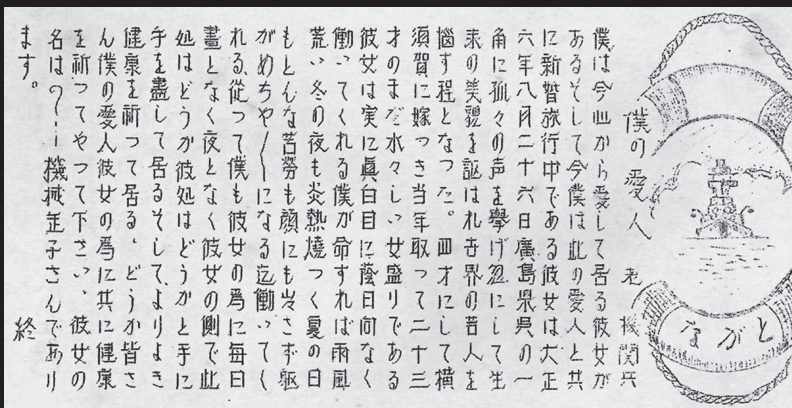 僕の愛人
老ノ機関兵
僕は今心から愛して居る彼女が
あるそして今僕は此の愛人と共
に新婚旅行中である彼女は大正
六年八月二十六日廣島県呉の一
角に孤々の声を擧げ忽にして生
来の美貌を謳はれ世界の若人を
悩す程となつた。四才にして横
須賀に嫁つき当年取つて二十三
才のまだ水々しい女盛りである
彼女は実に眞白目に蔭日向なく
働いてくれる僕が命ずれば雨風
荒い冬の夜も炎熱燒つく夏の日
もどんな苦勞も顔にも出さず躯
がめちや〱になる迄働いてく
れる、従つて僕も彼女の爲に毎日
晝となく夜となく彼女の側で此
処はどうか彼処はどうかと手に
手を盡して居るそして、よりよき
健康を祈つて居る、どうか皆さ
ん僕の愛人彼女の爲に共に健康
を祈つてやつて下さい、彼女の
名は？！機械正子さんであり
ます。
終
ながと